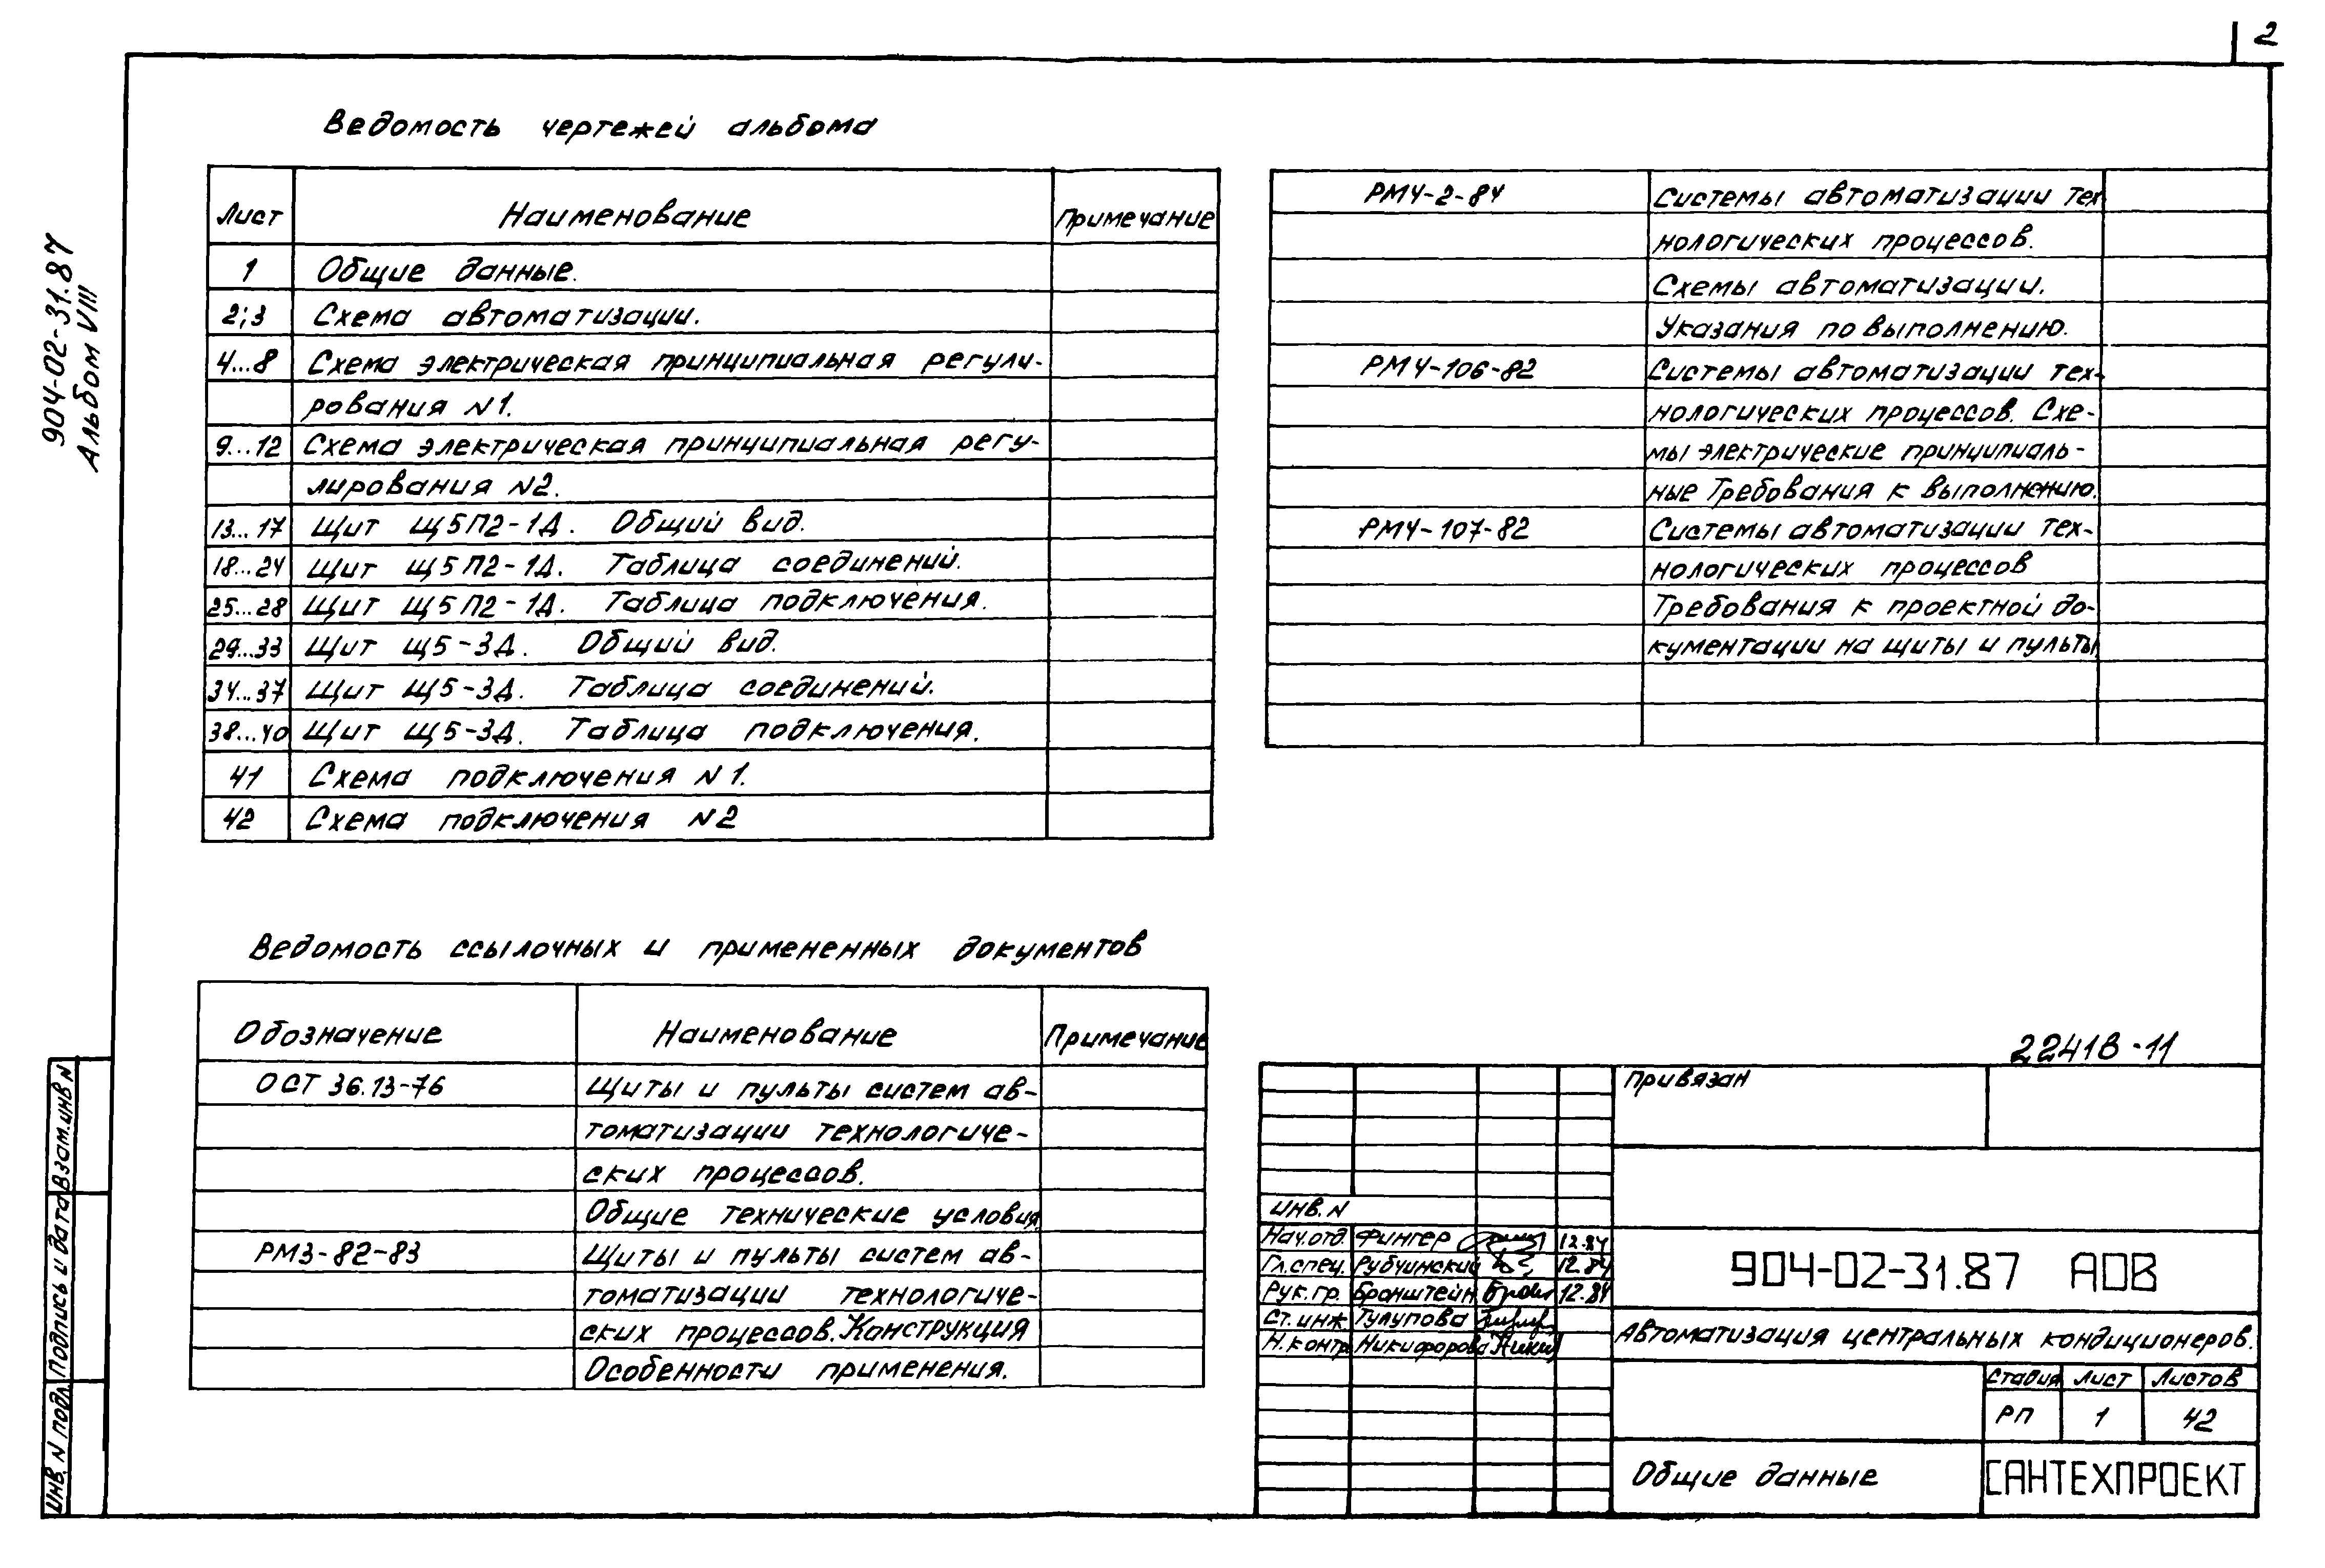 2
904-02-31.87
Альбом VIII
Ведомость чертежей альбома
Лист Наименование Примечание
1 Общие данные.
2;3 Схема автоматизации.
4...8 Схема электрическая принципиальная регули-
рования N1.
9...12 Схема электрическая принципиальная регу-
лирования N2.
13...17 Щит Щ5П2-1Д. Общий вид.
18...24 Щит Щ5П2-1Д. Таблица соединений.
25...28 Щит Щ5П2-1Д. Таблица подключения.
29...33 Щит Щ5-3Д. Общий вид.
34...37 Щит Щ5-3Д. Таблица соединений.
38...40 Щит Щ5-3Д. Таблица подключения.
41 Схема подключения N1.
42 Схема подключения N2
Ведомость ссылочных и примененных документов
Обозначение Наименование Примечание
ОСТ 36.13-76 Щиты и пульты систем ав-
томатизации технологиче-
ских процессов.
Общие технические условия.
РМ3-82-83 Щиты и пульты систем ав-
томатизации технологиче-
ских процессов. Конструкция
Особенности применения.
РМ4-2-84 Системы автоматизации тех
нологических процессов.
Схемы автоматизации.
Указания по выполнению.
РМ4-106-82 Системы автоматизации тех-
нологических процессов. Схе-
мы электрические принципиаль-
ные Требования к выполнению.
РМ4-107-82 Системы автоматизации тех-
нологических процессов
Требования к проектной до-
кументации на щиты и пульты
22418-11
Привязан
Инв. N
Нач.отд. Фингер 12.84
Гл.спец. Рубчинский 12.84
Рук.гр. Бронштейн 12.84
Ст.инж Тулупова
Н.контр Никифорова
904-02-31.87 АОВ
Автоматизация центральных кондиционеров.
Стадия Лист Листов
РП 1 42
Общие данные
САНТЕХПРОЕКТ
Взам.инв N
Подпись и дата
Инв. N подл.